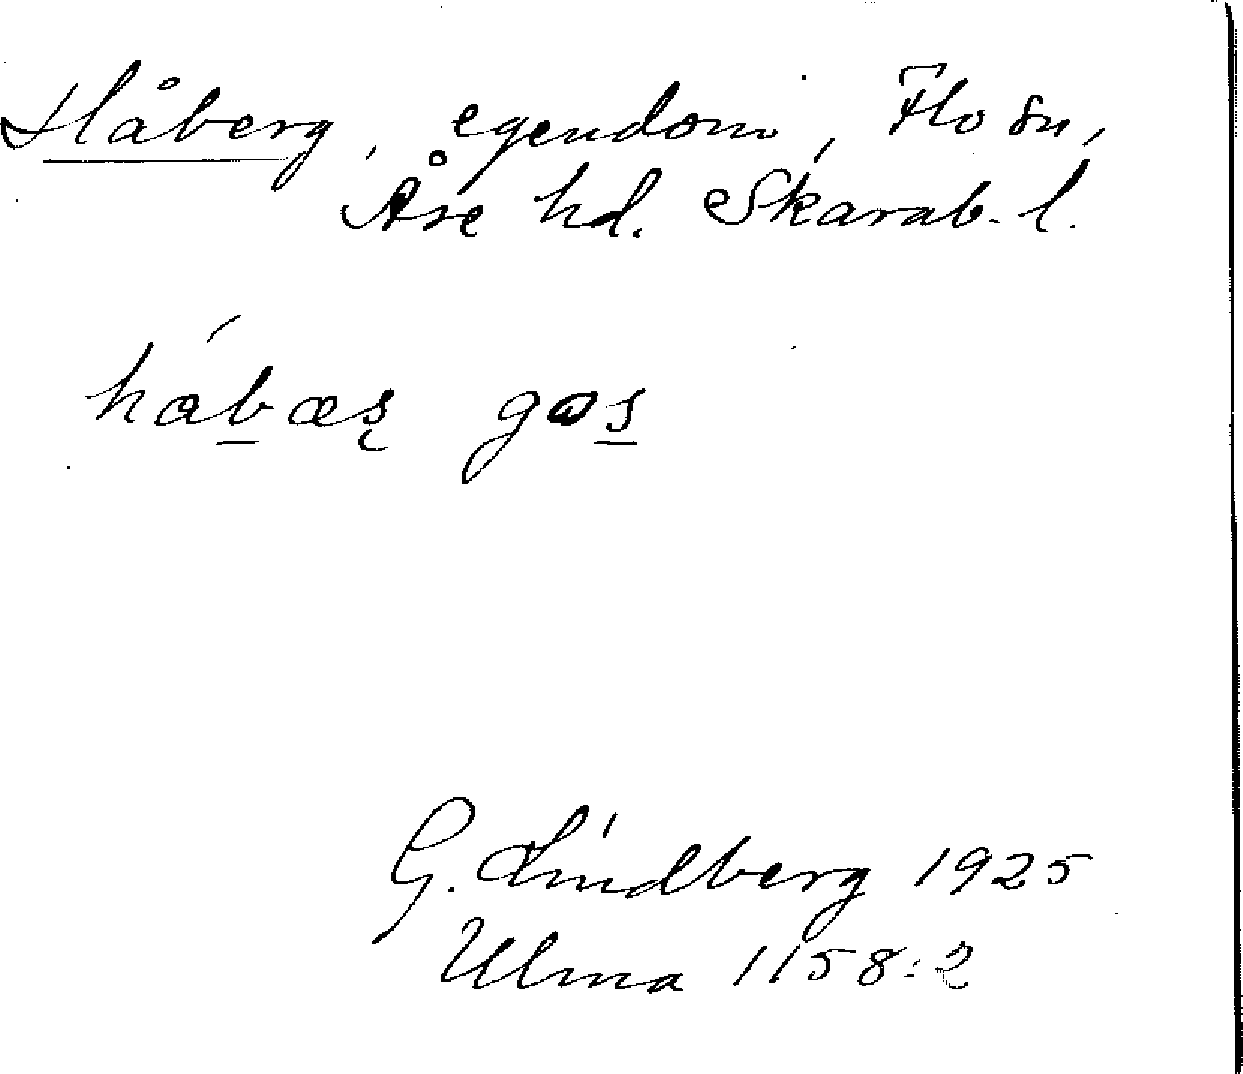 Håberg, egendom, Flo sn,
Åse hd. Skarab. l.
hábæş gɷs
G. Lindberg 1925
Ulma 1158:2